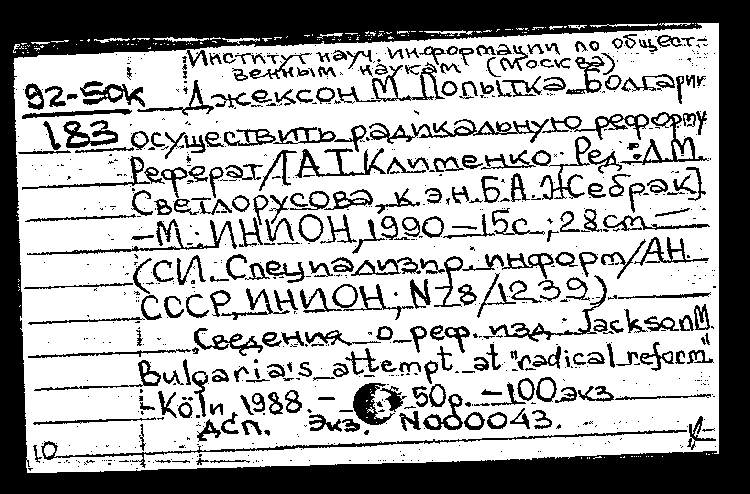 Институт науч. информации по общест-
венным наукам (Москва)
92-50к Джексон М. Попытка Болгарии
183 осуществить радикальную реформу
Реферат/[А.Т. Клименко; Ред.: Л.М.
Светлорусова, к.э.н. Б.А. Жебрак].
-М.: ИНИОН, 1990 – 15с.; 28cm. –
(СИ. Специализир. информ/АН
СССР, ИНИОН; N78/1239).
Сведения о реф. изд.: Jackson M
Bulgaria's attempt at "radical reform"
-Köln, 1988. – 50р. – 100экз
ДСП. Экз. N000043.
10